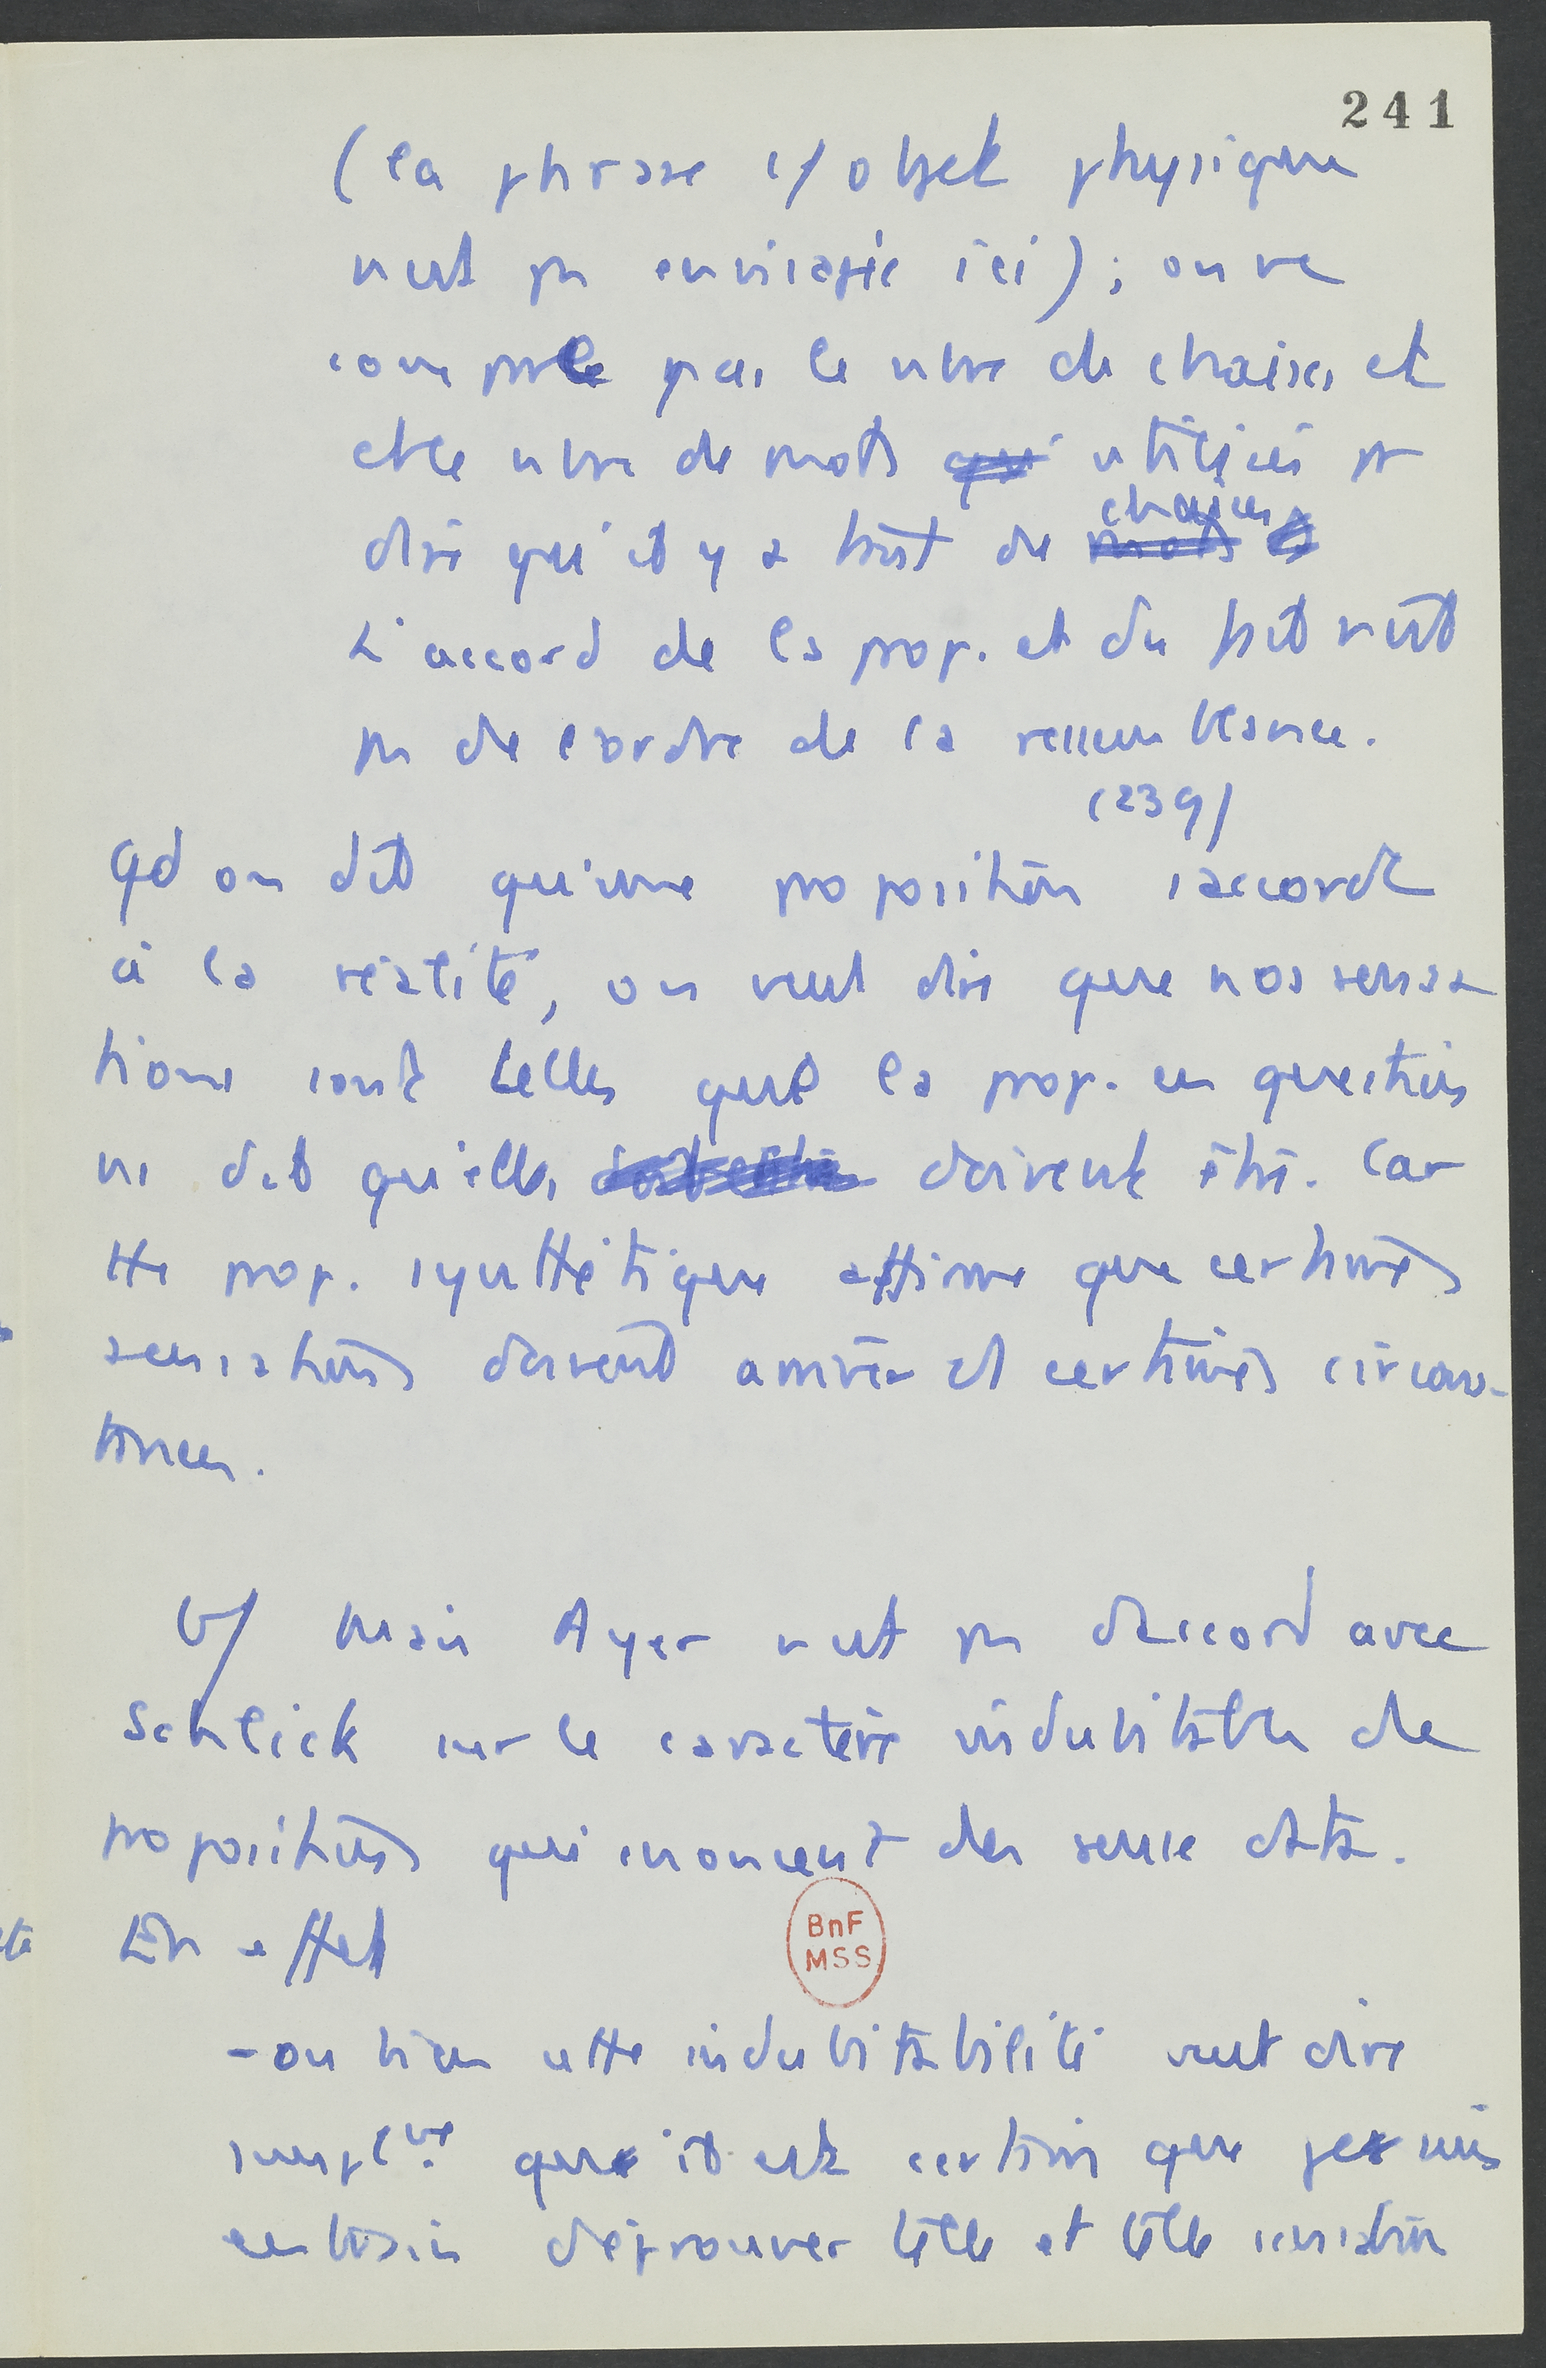 241
(la phrase c/ objet physique
n'est pas envisagée ici) ; on ne
compare pas le nbre de chaises et
et le nbre de mots qui utilisés pr
dire qu'il y a tant de mots chaises
L'accord de la prop. et du fait n'est
pas de l'ordre de la ressemblance.
(239)
Qd on dit qu'une proposition s'accorde
à la réalité, on veut dire que nos sensa
tions sont telles que la prop. en question
ns dit qu'elles doivent être. Car
tte prop. synthétique affirme que certaines
sensations doivent arriver et certaines circons-
tances.
b/ Mais Ayer n'est pas d'accord avec
Schlick sur le caractère indubitable de
propositions qui énoncent des sense data.
En effet
BnF
MSS
- ou bien cette indubitabilité veut dire
simplt. que il est certain que je suis
en train d'éprouver telle et telle sensation